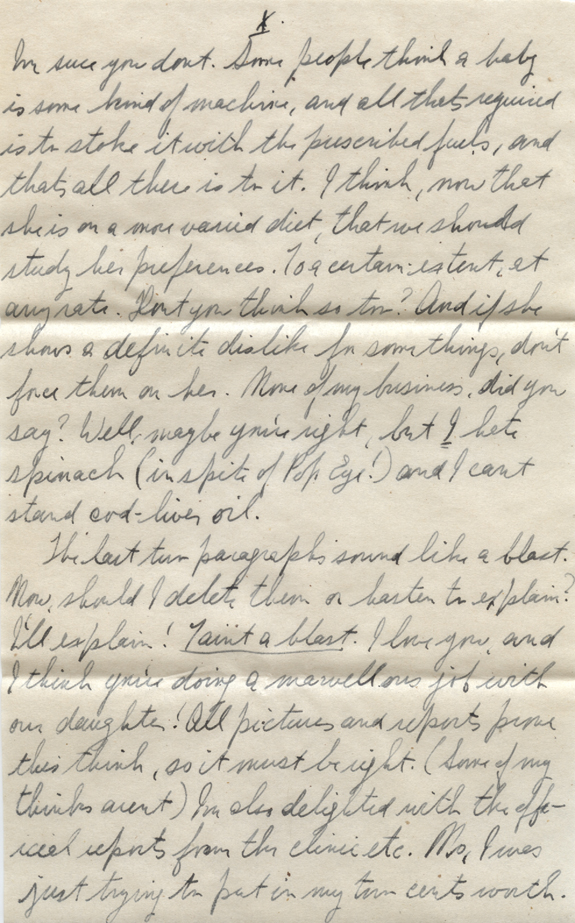 X.
I'm sure you dont. Some people think a baby
is some kind of machine, and all thats required
is to stoke it with the prescribed fuels, and
thats all there is to it. I think, now that
she is on a more varied diet, that we should
study her preferences. To a certain extent, at
any rate. Dont you think so too? And if she
shows a definite dislike for some things, don't
force them on her. None of my business, did you
say? Well, maybe you're right, but I hate
spinach (in spite of Pop Eye!) and I cant
stand cod-liver oil.
The last two paragraphs sound like a blast.
Now, should I delete them or hasten to explain?
I'll explain! Taint a blast. I love you, and
I think you're doing a marvellous job with
our daughter! All pictures and reports prove
this think, so it must be right. (Some of my
thinks arent) I'm also delighted with the offi-
cial reports from the clinic etc. No, I was
just trying to put in my two cents worth.